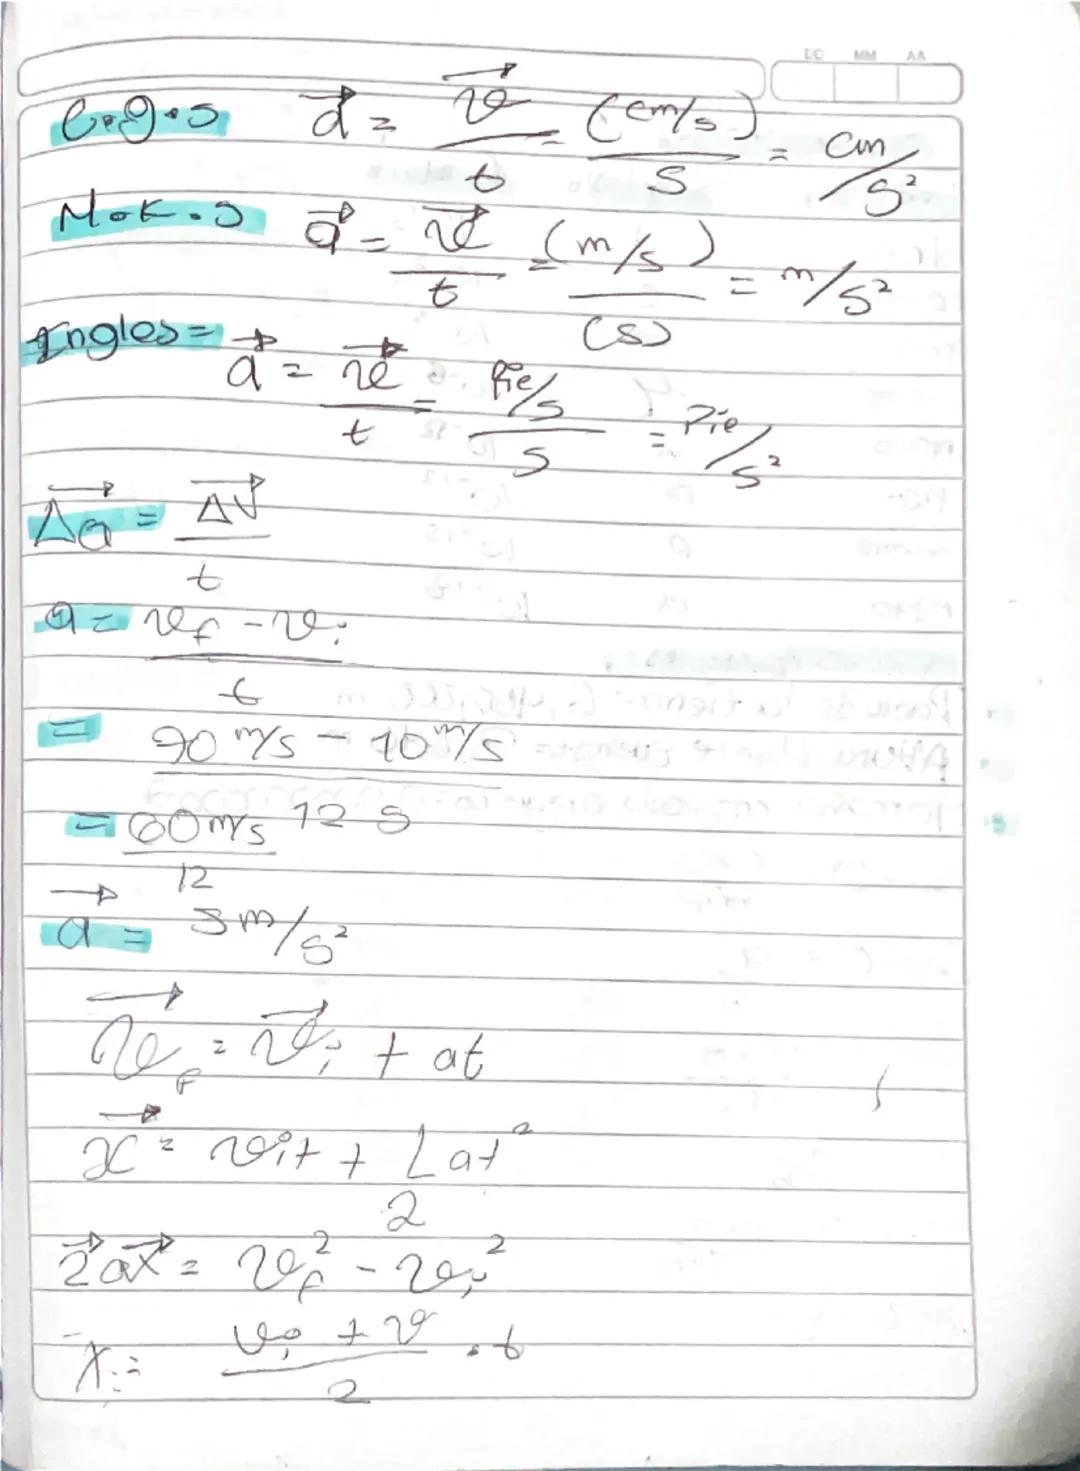 DD MM AA
C.g.s a⃗ = v⃗/t = (cm/s)/s = cm/s²
M.K.S a⃗ = v⃗/t = (m/s)/(s) = m/s²
Ingles = a⃗ = v⃗/t = Pie/s/s = Pie/s²
Δa⃗ = ΔV⃗/t
a = vf - vi/t
= 70 m/s - 10 m/s/12 s
= 60 m/s/12
a⃗ = 5 m/s²
v⃗f = v⃗i + at
x⃗ = vit + 1/2 at²
2⃗ax⃗ = vf² - vi²
x = vi + v/2 . t